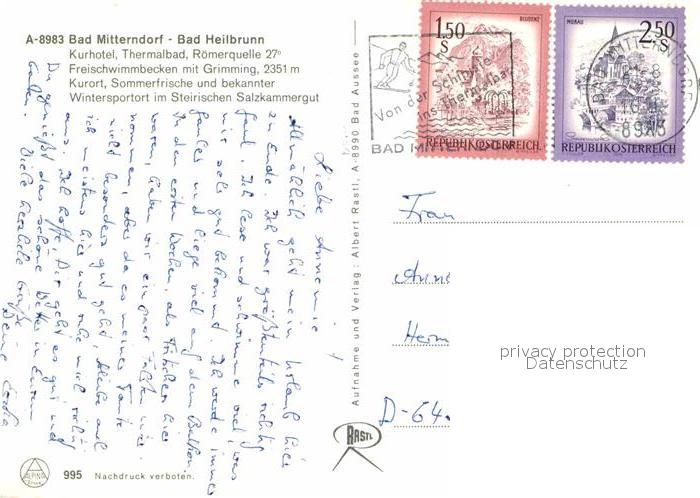 A-8983 Bad Mitterndorf - Bad Heilbrunn
Kurhotel, Thermalbad, Römerquelle 27°
Freischwimmbecken mit Grimming, 2351 m
Kurort, Sommerfrische und bekannter
Wintersportort im Steirischen Salzkammergut
Liebe Annemie
Allmählich geht mein Urlaub hier
zu Ende. Ich war größtenteils richtig
faul. Ich lese und schwimme viel, was
mir sehr gut bekommt. Ich werde immer
fauler und liege viel auf dem Balkon.
In den ersten Wochen, als Fritzchen hier
waren, haben wir ein paar Fahrten unter-
nommen, aber da es meiner Tante
nicht besonders gut geht, bleibe auch
ich meistens hier und ruhe mich richtig
aus. Ich hoffe, Dir geht es gut und
Du genießt das schöne Wetter in Eurem
Garten. Viele herzliche Grüße
Deine
Aufnahme und Verlag: Albert Rastl, A-8990 Bad Aussee
1.50
S
BLUDENZ
REPUBLIK ÖSTERREICH
2.50
S
MURAU
REPUBLIK ÖSTERREICH
Von der Schipiste
ins Thermalbad
BAD MITTERNDORF
BAD MITTERNDORF
8983
Frau
Anne
Herm
D-64
privacy protection
Datenschutz
RASTL
ALPINA
995 Nachdruck verboten.